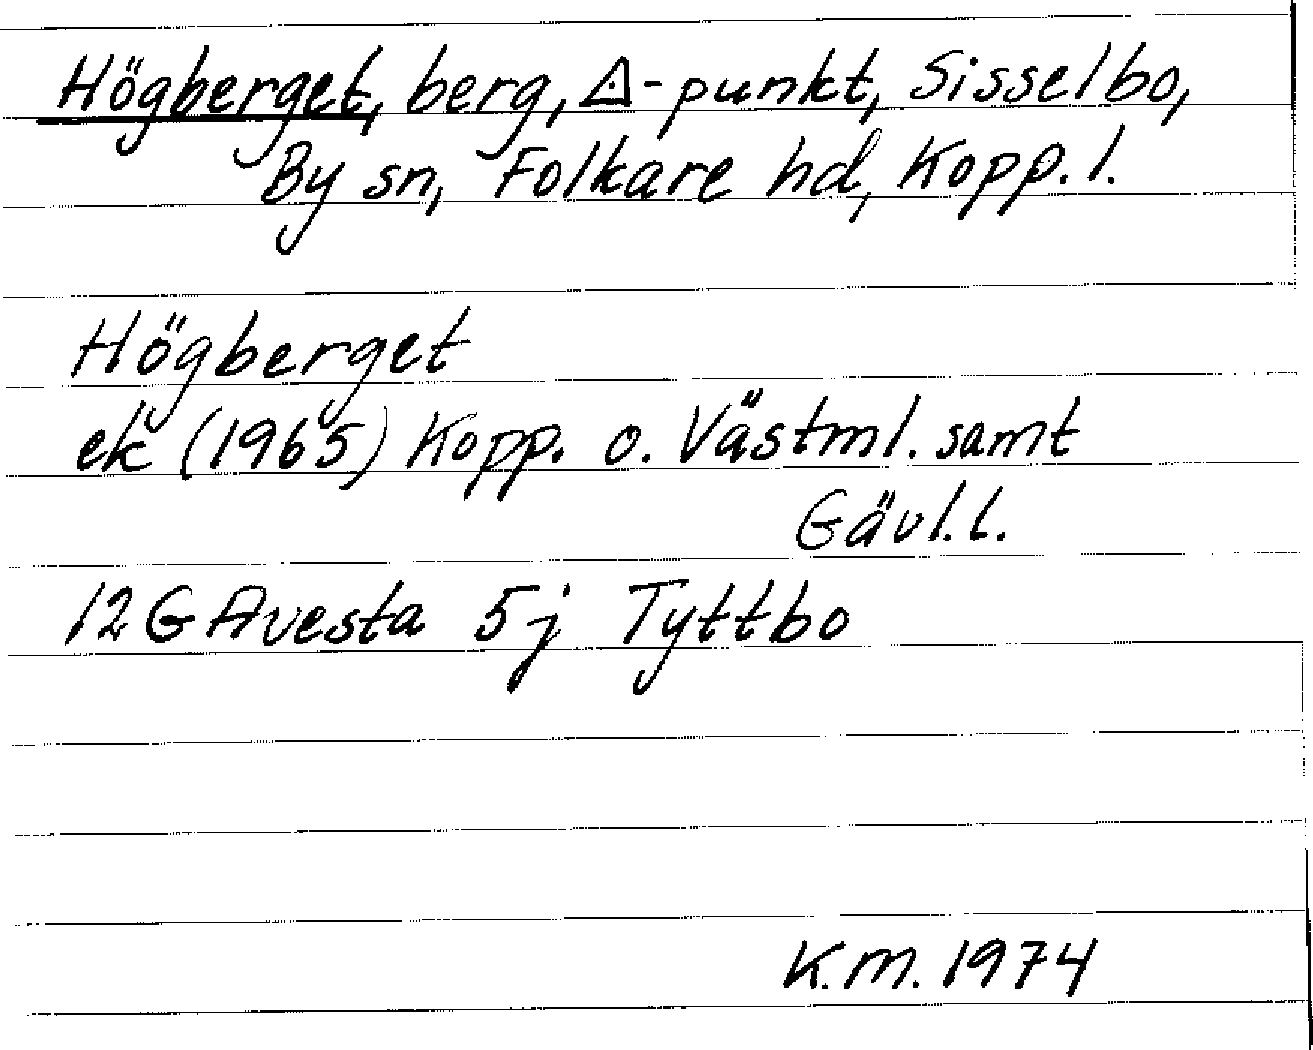 Högberget, berg, ◬-punkt, Sisselbo,
By sn, Folkare hd, Kopp. l.
Högberget
ek (1965) Kopp. o. Västml. samt
Gävl. l.
12 G Avesta 5j Tyttbo
K.M. 1974